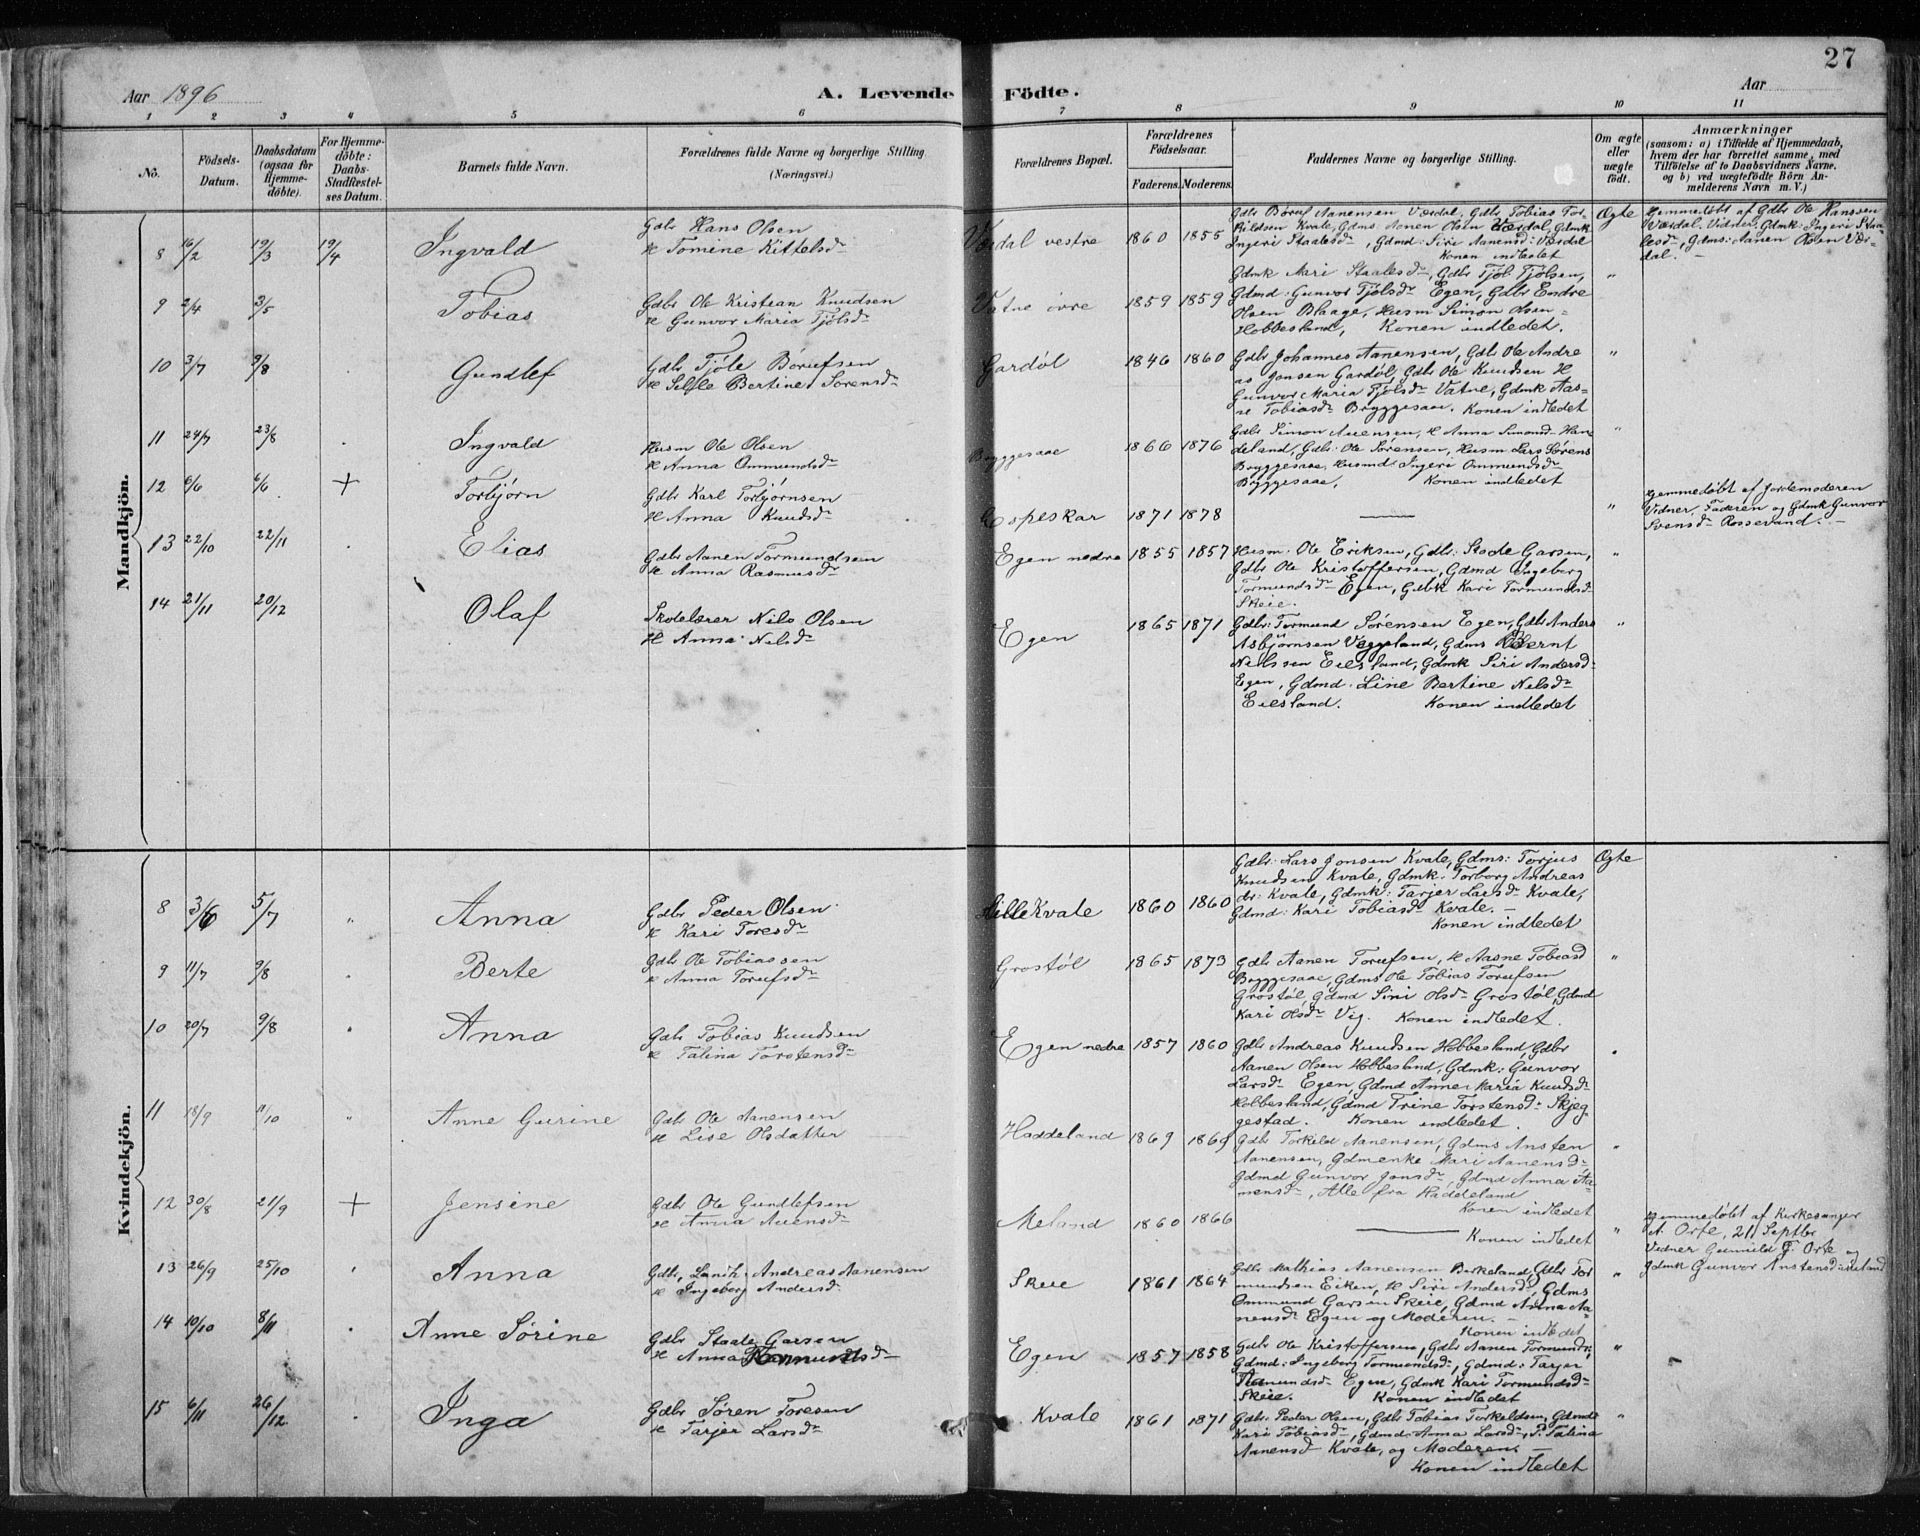 27
Aar 1896
A. Levende Födte.
Aar
1 2 3 4 5 6 7 8 9 10 11
No.
Födsels-Datum.
Daabsdatum (ogsaa for Hjemmedöbte).
For Hjemmedöbte: Daabs-Stadfæstelses Datum.
Barnets fulde Navn.
Forældrenes fulde Navne og borgerlige Stilling.
(Næringsvei.)
Forældrenes Bopæl.
Forældrenes Födselsaar.
Faderens. Moderens.
Faddernes Navne og borgerlige Stilling.
Om ægte eller uægte födt.
Anmærkninger
(saasom: a) i Tilfælde af Hjemmedaab, hvem der har forrettet samme, med Tilföielse af to Daabsvidners Navne, og b) ved uægtefödte Börn Anmelderens Navn m. V.)
Mandkjön.
8 16/2 19/3 19/4 Ingvald
Gdbr Hans Olsen
H Tomine Kittelsdr
Værdal vestre 1860 1855
Gdbr Børuf Aanensen Værdal, Gdbr Tobias Tor-
kildsen Kvale, Gdms Aanen Olsen Værdal, Gdmk
Ingeri Staalesdr, Gdmd: Siri Aanensd: Værdal
Konen indledet
Ægte
Hjemmedøbt af Gdbr Ole Hanssen
Værdal. Vidner: Gdmk: Ingeri Staa-
lesdr, Gdms: Aanen Olsen Vær-
dal. —
9 2/4 3/5 Tobias
Gdbr Ole Kristian Knudsen
H Gunvor Maria Tjølsdr
Vatne øvre 1859 1859
Gdmk Mari Staalesdr, Gdbr Tjøl Tjølsen,
Gdmd: Gunvor Tjølsdr Egen, Gdbr Endre
Olsen Blaage, Husm Simon Olsen
Hobbesland, Konen indledet.
"
10 3/7 9/8 Gundlef
Gdbr Tjøle Børufsen
H Selfe Bertine Sørensdr
Gardøl 1846 1860
Gdbr Johannes Aanensen, Gdbr Ole Andre
as Jonsen Gardøl, Gdbr Ole Knudsen H
Gunvor Maria Tjølsdr Vatne, Gdmk Aas-
ne Tobiasdr Bryggesaae. Konen indledet
"
11 24/7 23/8 Ingvald
Husm Ole Olsen
H Anna Ommundsdr
Bryggesaae 1866 1876
Gdbr Simon Auensen, H Anna Simonsd Had-
deland, Gdbr: Ole Sørensen, Husm Lars Sørens
Bryggesaae, Husmd: Ingeri Ommundsdr
Bryggesaae, Konen indledet
"
12 6/6 6/6 + Torbjørn
Gdbr Karl Torbjørnsen
H Anna Knudsdr
Espeskar 1871 1878
—
"
Hjemmedøbt af Jordemoderen
Vidner, Faderen og Gdmk Gunvor
Svensdr Rossevand. —
13 22/10 22/11 Elias
Gdbr Aanen Tormundsen
H Anna Rasmusdr
Egen nedre 1855 1857
Husm. Ole Eriksen, Gdbr: Stade Garsen,
Gdbr Ole Kristoffersen, Gdmd Ingeberg
Tormundsdr Egen, Gdbk Kari Tormundsd
Skeie.
"
14 21/11 20/12 Olaf
Skolelærer Nils Olsen
H Anna Nilsdr
Egen 1865 1871
Gdbr: Tormund Sørensen Egen, Gdbr Anders
Asbjørnsen Veggeland, Gdms Bernt
Nilssen Eiesland, Gdmk Siri Andersd
Egen, Gdmd: Line Bertine Nilsdr
Eiesland. Konen indledet
"
Kvindekjön.
8 3/6 5/7 " Anna
Gdbr Peder Olsen
H Kari Toresdr
Lille Kvale 1860 1860
Gdbr: Lars Jonsen Kvale, Gdms: Torjus
Knudsen Kvale, Gdmk: Torborg Andreas
dr Kvale, Gdmk: Tarjer Larsdr Kvale,
Gdmd: Kari Tobiasdr Kvale. —
Konen indledet
Ægte
9 11/7 9/8 Berte
Gdbr Ole Tobiassen
H Anna Torufsdr
Grostøl 1865 1873
Gdbr Aanen Torufsen, H Aasne Tobiasd
Bryggesaae, Gdms Ole Tobias Torufsen
Grostøl, Gdmd Siri Olsdr Grostøl, Gdmd
Kari Olsdr Vig. Konen indledet.
"
10 20/7 9/8 Anna
Gdbr Tobias Knudsen
H Talina Torstensdr
Egen nedre 1857 1860
Gdbr Andreas Knudsen Hobbesland, Gdbr
Aanen Olsen Hobbesland, Gdmk: Gunvor
Larsdr Egen, Gdmd Anne Maria Knudsdr
Hobbesland, Gdmd Trine Torstensdr Skjeg-
gestad. Konen indledet.
11 18/9 11/10 " Anne Gurine
Gdbr Ole Aanensen
H Lise Olsdatter
Haddeland 1869 1869
Gdbr Torkild Aanensen, Gdms Ansten
Aanensen, Gdmenke Mari Aanensdr
Gdmd Gunvor Jonsdr, Gdmd Anna Aa-
nensdr, Alle fra Haddeland
Konen indledet
"
12 30/8 21/9 + Jensine
Gdbr Ole Gundlefsen
H Anna Auensdr
Meland 1860 1866
— Konen indledet
"
Hjemmedøbt af Kirkesanger
A. Orte, 21 Septbr
Vidner Gunvild F. Orte og
Gdmk Gunvor Anstensd
13 26/9 25/10 Anna
Gdbr, Landh: Andreas Aanensen
H Ingeborg Andersd
Skeie 1861 1864
Gdbr Mathias Aanensen Birkeland, Gdbr Tor
mundsen Eiken, H Siri Andersd, Gdms
Ommund Garsen Skeie, Gdmd Anna Aa-
nensdr Egen og Moderen. —
Konen indledet
"
14 10/10 8/11 Anne Sørine
Gdbr Staale Garsen
H Anna
Egen 1857 1858
Gdbr Ole Kristoffersen, Gdbr Aanen Tormunds,
Gdmd: Ingeberg Tormundsdr, Gdmd: Tarjer
Egen, Gdmk Kari Tormundsdr
Skeie. Konen indledet
"
15 6/11 26/12 Inga
Gdbr Søren Toresen
H Tarjer Larsdr
Kvale 1861 1871
Gdbr: Peder Olsen, Gdbr Tobias Torkeldsen, Gdmd
Kari Tobiasdr, Gdmd: Anna Larsdr, P. Talina
Aanensd Kvale, og Moderen. —
Konen indledet
"